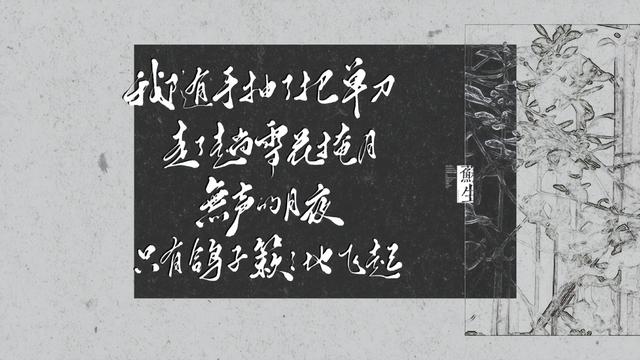 我随手抽了把单刀
走了趟雪花掩月
無声的月夜
只有鸽子簌簌地飞起